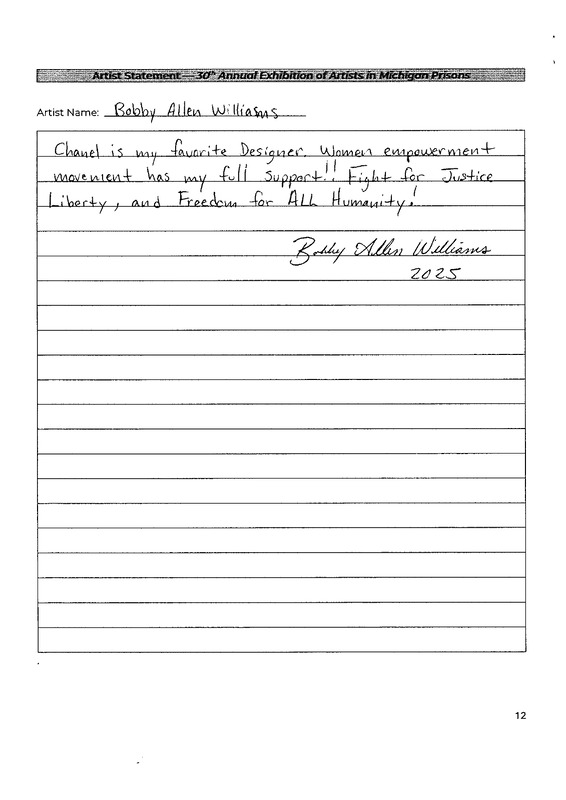 Artist Statement — 30th Annual Exhibition of Artists in Michigan Prisons
Artist Name: Bobby Allen Williams
Chanel is my favorite Designer. Women empowerment
movement has my full support!! Fight for Justice
Liberty, and Freedom for ALL Humanity!
Bobby Allen Williams
2025
12